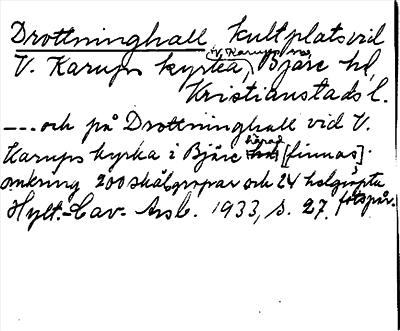 Drottninghall, kultplats vid
V. Karups kyrka, (V. Karups sn) Bjäre hd,
Kristianstads l.
--- och på Drottninghall vid V.
Karups kyrka i Bjäre härad [finnas]
omkring 200 skålgropar och 24 helgjupta
fotspår.
Hylt.-Cav. Årsb. 1933, s. 27.